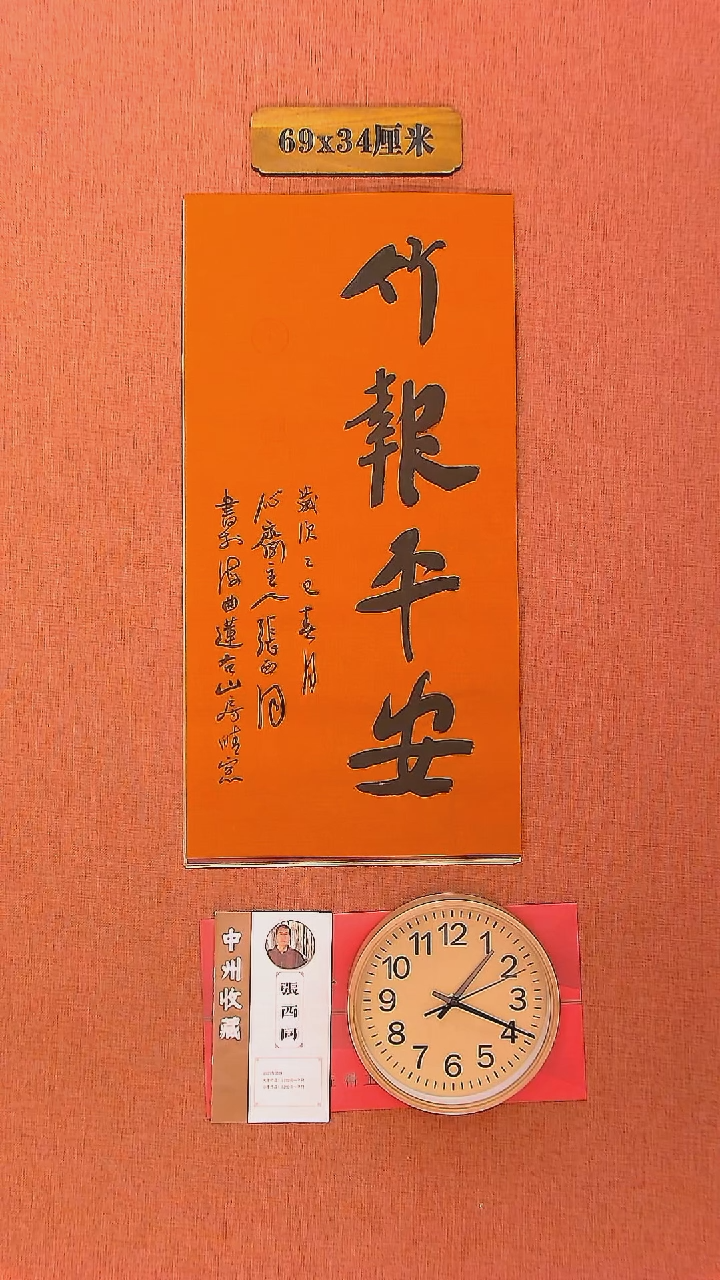 69x34厘米
竹報平安
歲次乙巳春月
心齋主人張西同
書於海曲蓮右山房晴窓
中州收藏
張西同
12
1
2
3
4
5
6
7
8
9
10
11